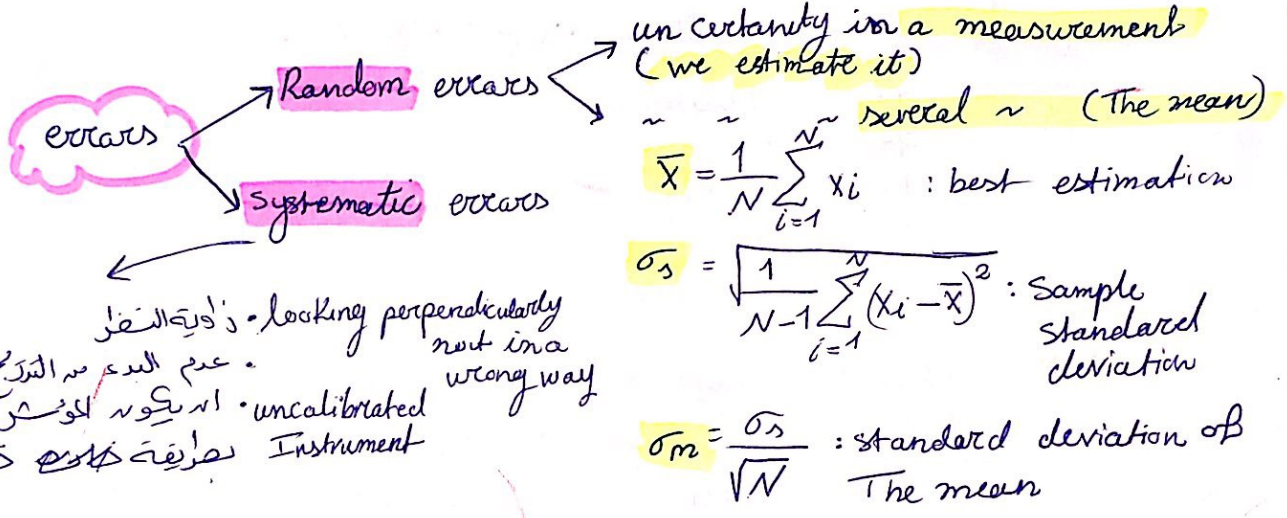 errors
Random errors
Systematic errors
un certanity in a measurement
(we estimate it)
~ ~ ~ several ~ (The mean)
X̄ = 1/N ∑_{i=1}^{N} xi : best estimation
σs = √(1/(N-1) ∑_{i=1}^{N} (xi - x̄)²) : Sample
standard
deviation
σm = σs/√N : standard deviation of
The mean
زاوية النضر • looking perpendicularly
not in a
wrong way
• عدم البدء من
ان يكون • uncalibrated
بطريقة Instrument